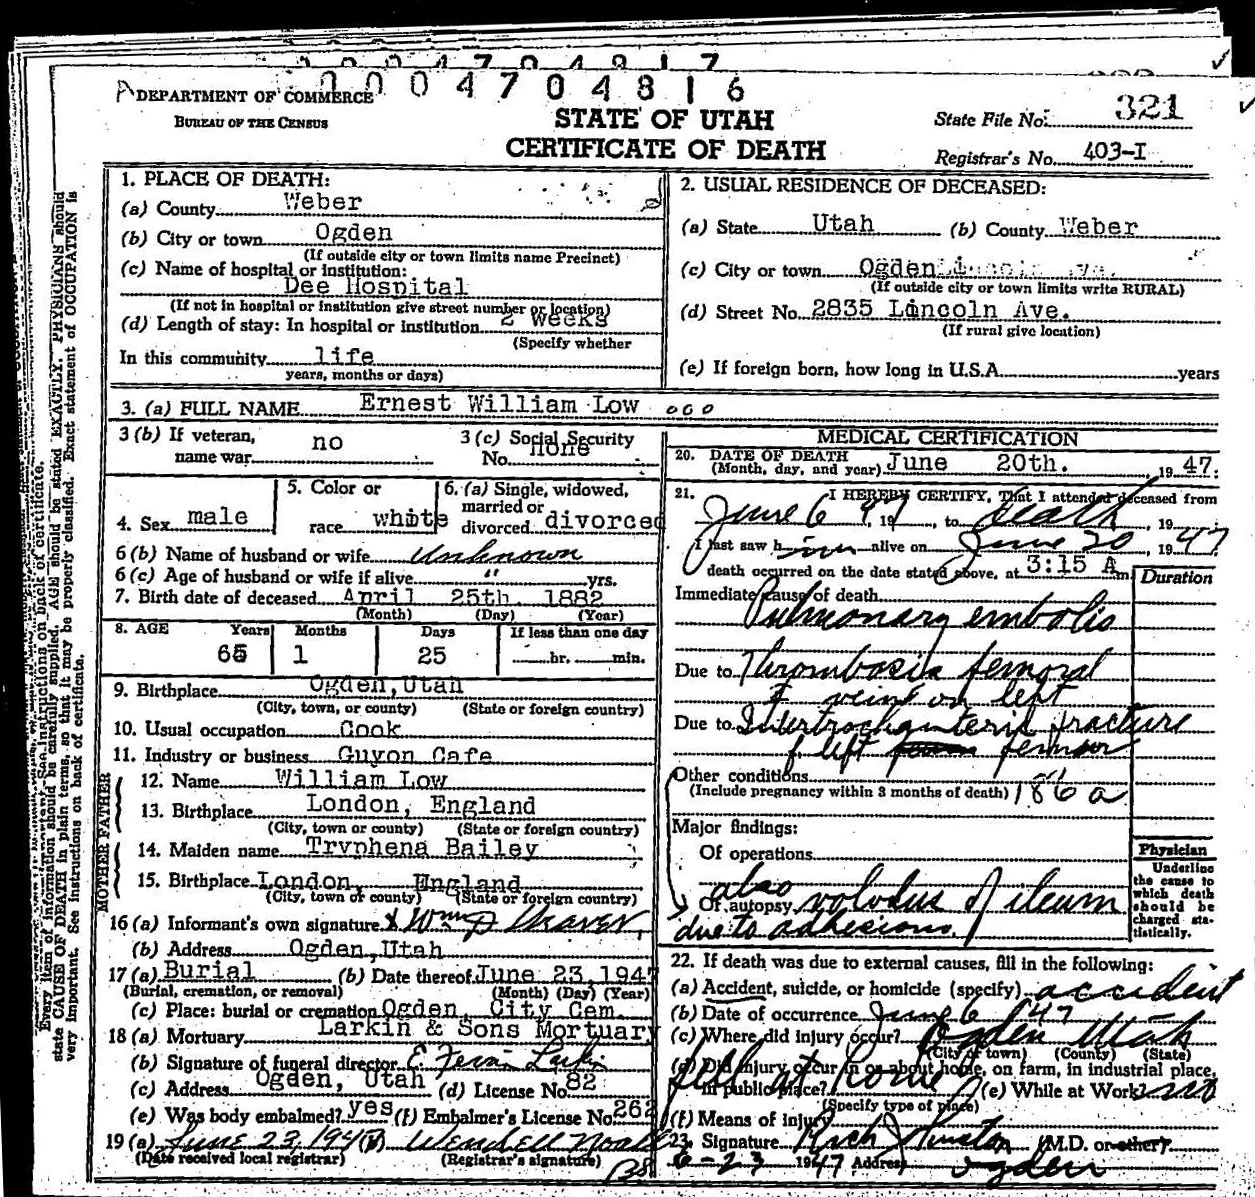 0 0 0 4 7 0 4 8 1 7
0 0 0 4 7 0 4 8 1 6
DEPARTMENT OF COMMERCE
BUREAU OF THE CENSUS
STATE OF UTAH
CERTIFICATE OF DEATH
State File No. 321
Registrar's No. 403-I
1. PLACE OF DEATH:
(a) County Weber
(b) City or town Ogden
(If outside city or town limits name Precinct)
(c) Name of hospital or institution:
Dee Hospital
(If not in hospital or institution give street number or location)
(d) Length of stay: In hospital or institution 2 weeks
(Specify whether
In this community life
years, months or days)
2. USUAL RESIDENCE OF DECEASED:
(a) State Utah (b) County Weber
(c) City or town Ogden Lincoln Ave.
(If outside city or town limits write RURAL)
(d) Street No. 2835 Lincoln Ave.
(If rural give location)
(e) If foreign born, how long in U.S.A. years
3. (a) FULL NAME Ernest William Low
3 (b) If veteran, name war no
3 (c) Social Security No. none
4. Sex male
5. Color or race white
6. (a) Single, widowed, married or divorced divorced
6 (b) Name of husband or wife Unknown
6 (c) Age of husband or wife if alive " yrs.
7. Birth date of deceased April 25th 1882
(Month) (Day) (Year)
8. AGE Years Months Days If less than one day
65 1 25 hr. min.
9. Birthplace Ogden, Utah
(City, town, or county) (State or foreign country)
10. Usual occupation Cook
11. Industry or business Guyon Cafe
FATHER
12. Name William Low
13. Birthplace London, England
(City, town or county) (State or foreign country)
MOTHER
14. Maiden name Tryphena Bailey
15. Birthplace London, England
(City, town or county) (State or foreign country)
16 (a) Informant's own signature X Wm Deaver
(b) Address Ogden, Utah
17 (a) Burial (b) Date thereof June 23, 1947
(Burial, cremation, or removal) (Month) (Day) (Year)
(c) Place: burial or cremation Ogden, City Cem.
18 (a) Mortuary Larkin & Sons Mortuary
(b) Signature of funeral director E Larkin
(c) Address Ogden, Utah (d) License No. 82
(e) Was body embalmed? yes (f) Embalmer's License No. 262
19 (a) June 23, 1947 (b) Wendell Noall
(Date received local registrar) (Registrar's signature)
MEDICAL CERTIFICATION
20. DATE OF DEATH
(Month, day, and year) June 20th. , 19 47.
21. I HEREBY CERTIFY, That I attended deceased from
June 6 47, 19 , to death , 19
I last saw him alive on June 20 , 19 47
death occurred on the date stated above, at 3:15 A m.
Duration
Immediate cause of death
Pulmonary embolio
Due to Thrombosis femoral
vein on left
Due to Intertrochanteric fracture
of left femur
Other conditions
(Include pregnancy within 3 months of death) 186a
Major findings:
Of operations
Of autopsy also volvolus of ileum
due to adhesions.
Physician
Underline
the cause to
which death
should be
charged sta-
tistically.
22. If death was due to external causes, fill in the following:
(a) Accident, suicide, or homicide (specify) accident
(b) Date of occurrence June 6 47
(c) Where did injury occur? Ogden Utah
(City or town) (County) (State)
(d) Did injury occur in or about home, on farm, in industrial place,
in public place? fell at home (e) While at Work? no
(Specify type of place)
(f) Means of injury
23. Signature Rich Johnston (M.D. or other)
6-23 1947 Address Ogden
Every item of information should be carefully supplied. AGE should be stated EXACTLY. PHYSICIANS should
state CAUSE OF DEATH in plain terms, so that it may be properly classified. Exact statement of OCCUPATION is
very important. See instructions on back of certificate.